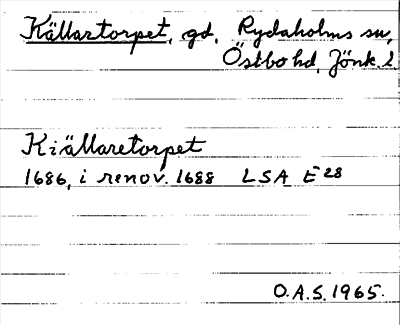 Källartorpet, gd, Rydaholms sn,
Östbo hd, Jönk. l.
Kiällaretorpet
1686, i renov. 1688 LSA E28
O.A.S. 1965.